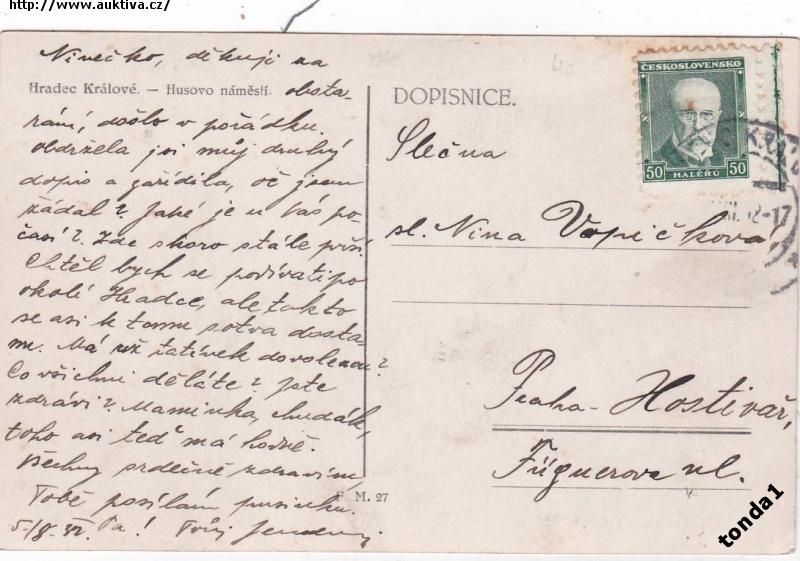 http://www.auktiva.cz/
Ninečko, děkuji za
Hradec Králové. — Husovo náměstí. obsta-
rání, došlo v pořádku.
Obdržela jsi můj druhý
dopis a zařídila, oč jsem
žádal? Jaké je u Vás po-
časí? Zde skoro stále prší.
Chtěl bych se podívati po
okolí Hradce, ale takto
se asi k tomu sotva dosta-
nu. Má už tatínek dovolenou?
Co všichni děláte? Jste
zdrávi? Maminka, chudák,
toho asi teď má hodně.
Všechny srdečně zdravím,
Tobě posílám pusinku.
5./8. 32. Pa! Tvůj
F. M. 27
DOPISNICE.
ČESKOSLOVENSKO
50 HALÉŘŮ 50
Slečna
sl. Nina Vopičková,
Praha-Hostivař,
Fügnerova ul.
tonda1